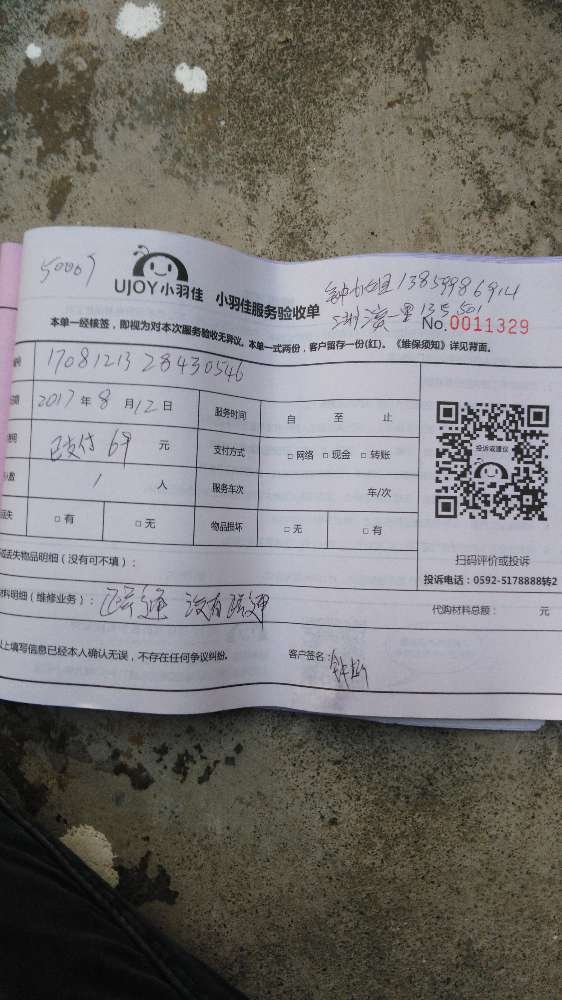 5000
UJOY小羽佳 小羽佳服务验收单
钟小姐 13859986914
一里135 501
No.0011329
本单一经核签，即视为对本次服务验收无异议。本单一式两份，客户留存一份(红)。《维保须知》详见背面。
17081213 28430546
2017年8月12日 服务时间 自 至 止
已支付 69 元 支付方式 □ 网络 □ 现金 □ 转账
1 人 服务车次 车/次
□ 有 □ 无 物品损坏 □ 无 □ 有
投诉或建议
丢失物品明细（没有可不填）：
扫码评价或投诉
投诉电话：0592-5178888转2
料明细（维修业务）： 没有疏通
代购材料总额： 元
上填写信息已经本人确认无误，不存在任何争议纠纷。 客户签名：